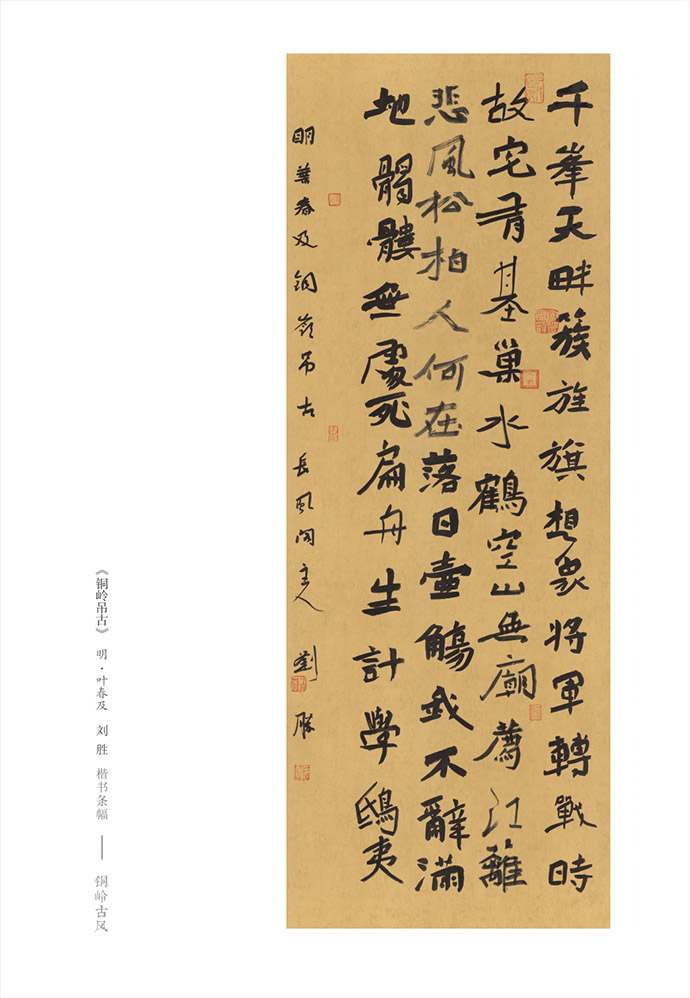 千峯天畔簇旌旗想象將軍轉戰時
故宅有基巢水鶴空山無廟薦江籬
悲風松柏人何在落日壺觴我不辭滿
地髑髏無處死扁舟生計學鴟夷
明葉春及銅嶺吊古 長風閣主人 劉勝
《铜岭吊古》 明·叶春及 刘胜 楷书条幅 —— 铜岭古风